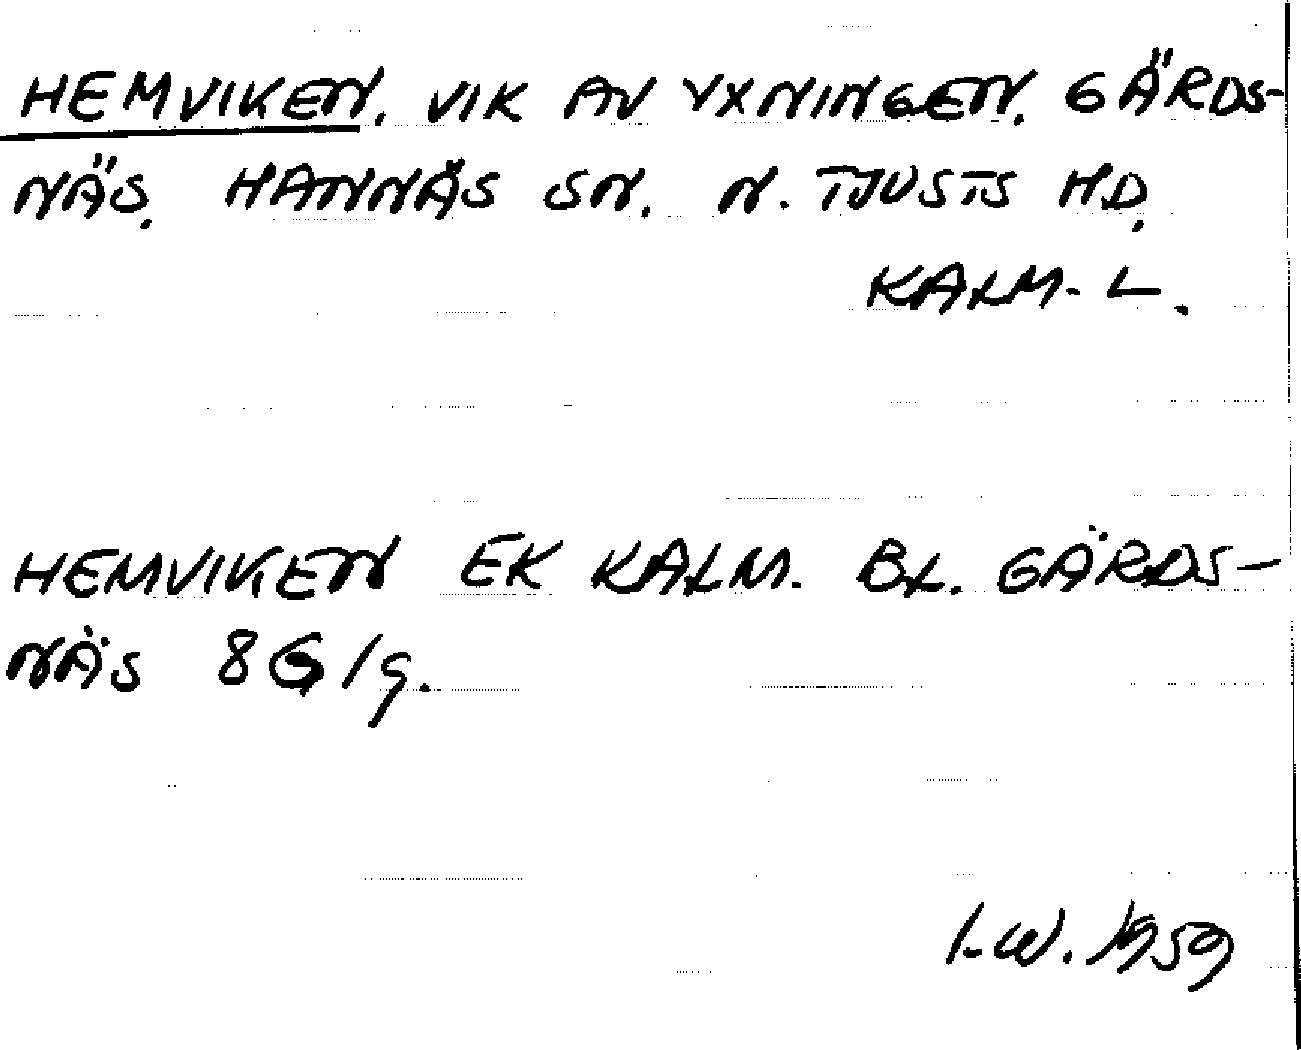 HEMVIKEN. VIK AV YXNINGEN. GÄRDS-
NÄS. HANNÄS SN. N. TJUSTS HD.
KALM. L.
HEMVIKEN EK KALM. BL. GÄRDS-
NÄS 8G/g.
I.W. 1959